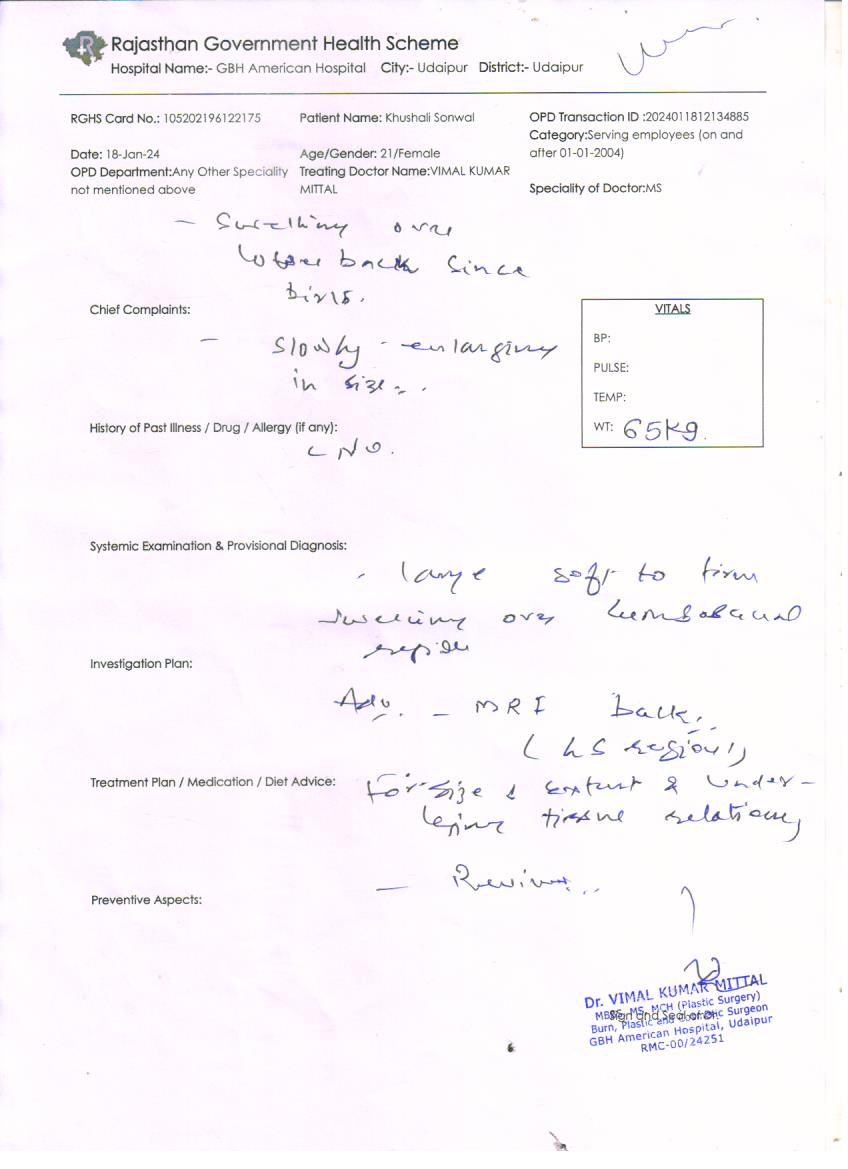 Rajasthan Government Health Scheme
Hospital Name:- GBH American Hospital City:- Udaipur District:- Udaipur
RGHS Card No.: 105202196122175 Patient Name: Khushali Sonwal OPD Transaction ID :2024011812134885
Category:Serving employees (on and
Date: 18-Jan-24 Age/Gender: 21/Female after 01-01-2004)
OPD Department:Any Other Speciality Treating Doctor Name:VIMAL KUMAR
not mentioned above MITTAL Speciality of Doctor:MS
- Swelling over
lower back since
birth.
Chief Complaints:
VITALS
BP:
- Slowly - enlarging
PULSE:
in size.
TEMP:
History of Past Illness / Drug / Allergy (if any):
WT: 65Kg.
NO.
Systemic Examination & Provisional Diagnosis:
large soft to firm
swelling over lumbosacral
region
Investigation Plan:
Adv. - MRI back.
(LS region)
Treatment Plan / Medication / Diet Advice:
For size & extent & under-
lying tissue relation
- Review..
Preventive Aspects:
Dr. VIMAL KUMAR MITTAL
MBBS, MS, MCH (Plastic Surgery)
Sign and Seal of Dr.
Burn, Plastic and Cosmetic Surgeon
GBH American Hospital, Udaipur
RMC-00/24251